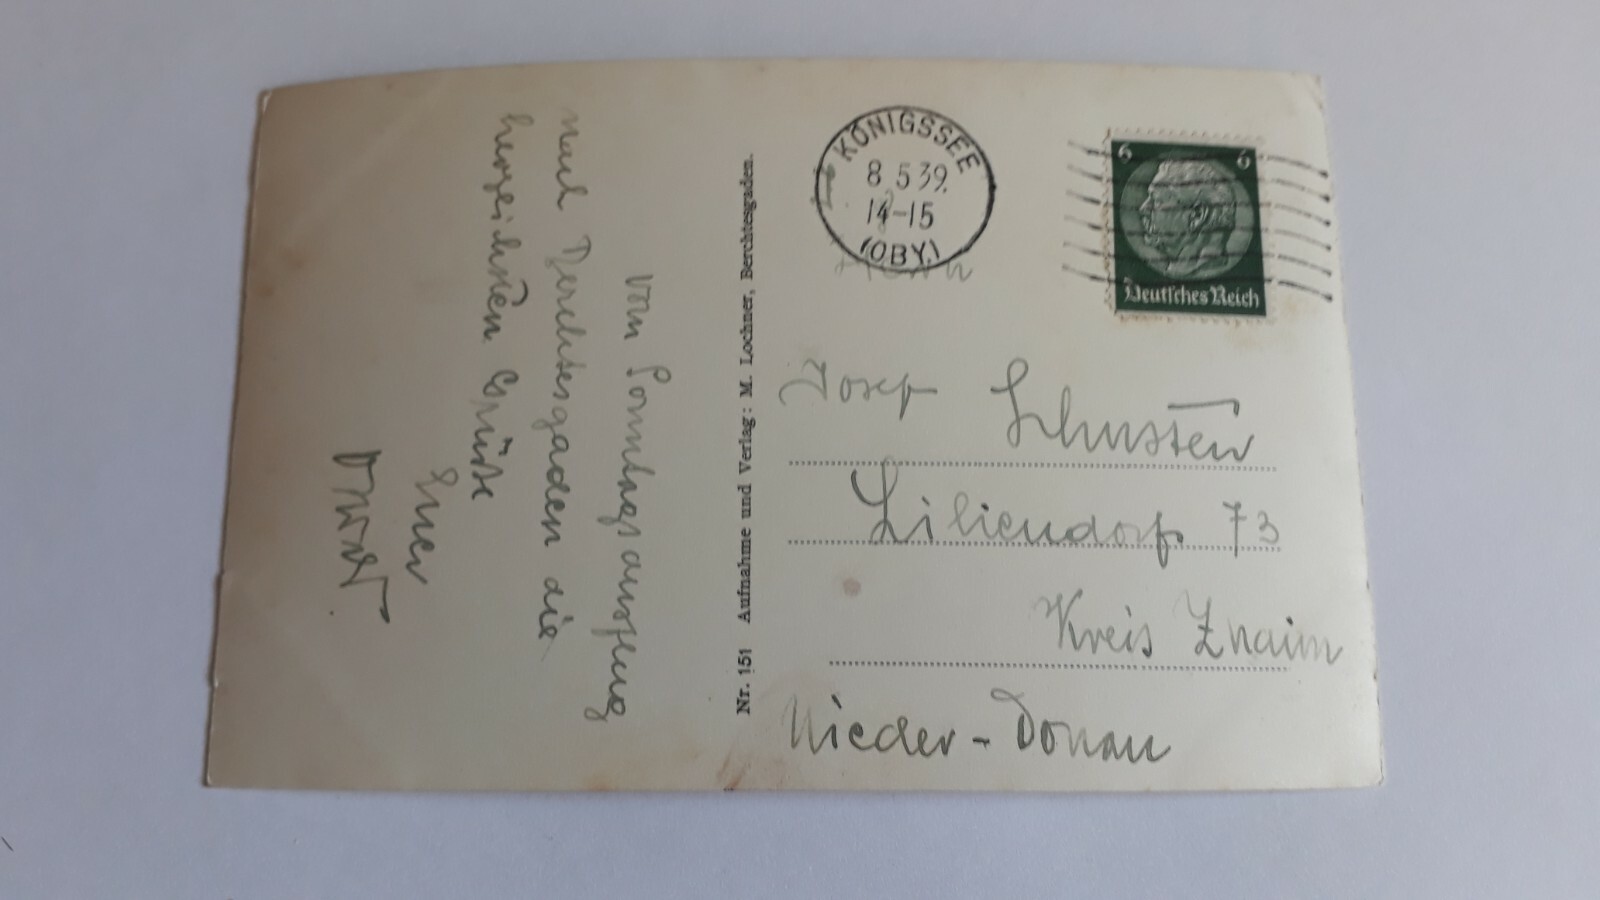 vom Sonntagsausflug
nach Berchtesgaden die
herzlichsten Grüße
Euer
Nr. 151 Aufnahme und Verlag: M. Lochner, Berchtesgaden.
KÖNIGSSEE
8 5 39.
14-15
(OBY.)
6 6
Deutsches Reich
Herrn
Josef Schuster
Liliendorf 73
Kreis Znaim
Nieder-Donau